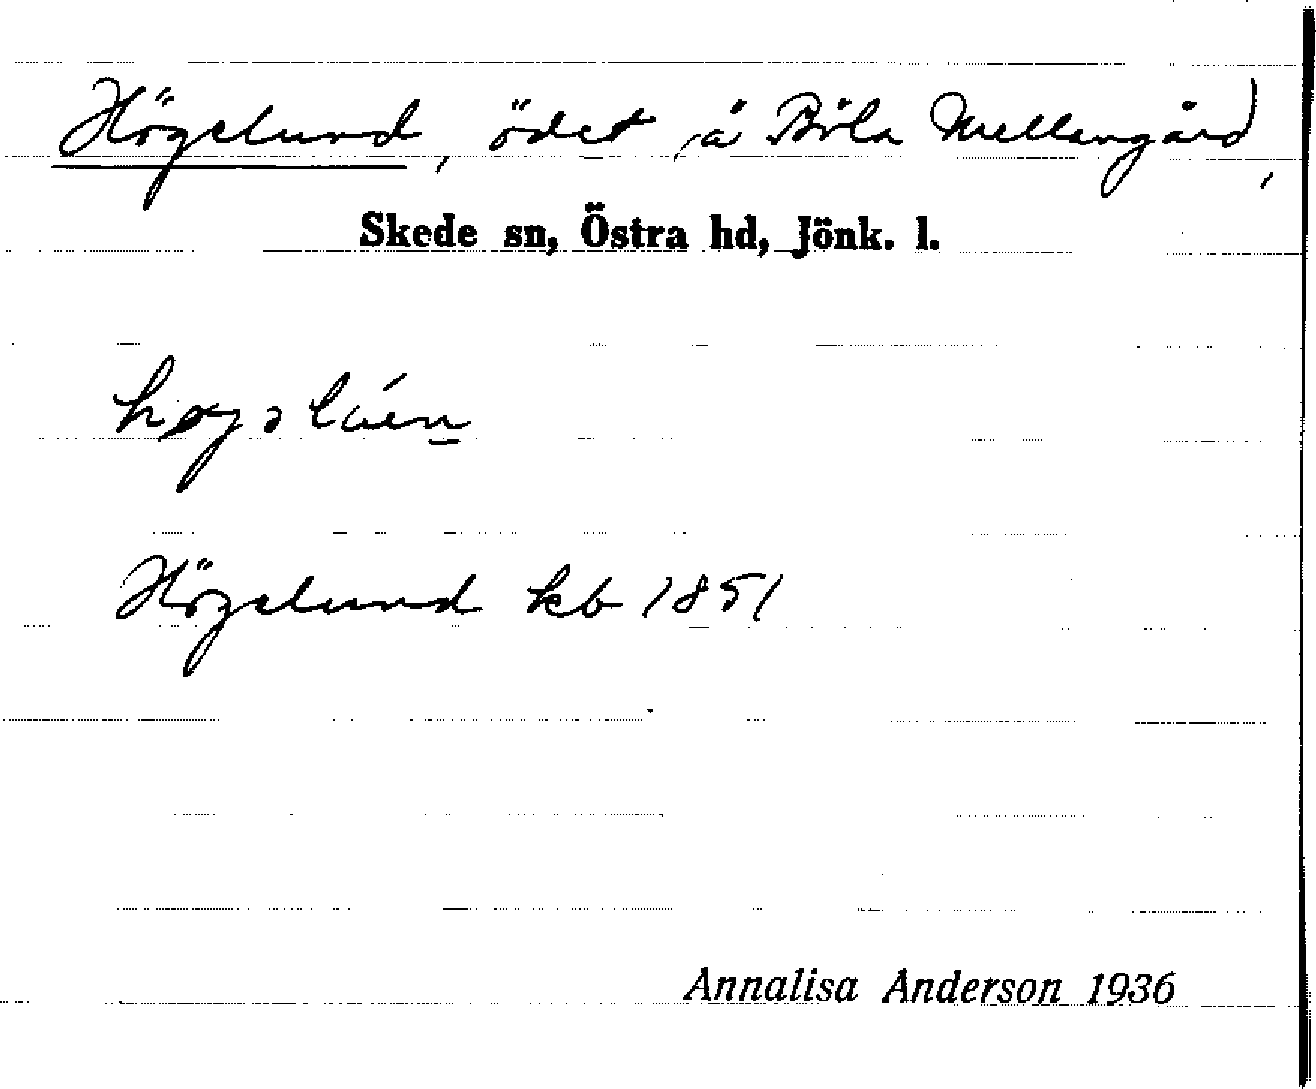 Högelund, ödet å Böla Mellangård,
Skede sn, Östra hd, Jönk. l.
Högelund kb 1851
Annalisa Anderson 1936